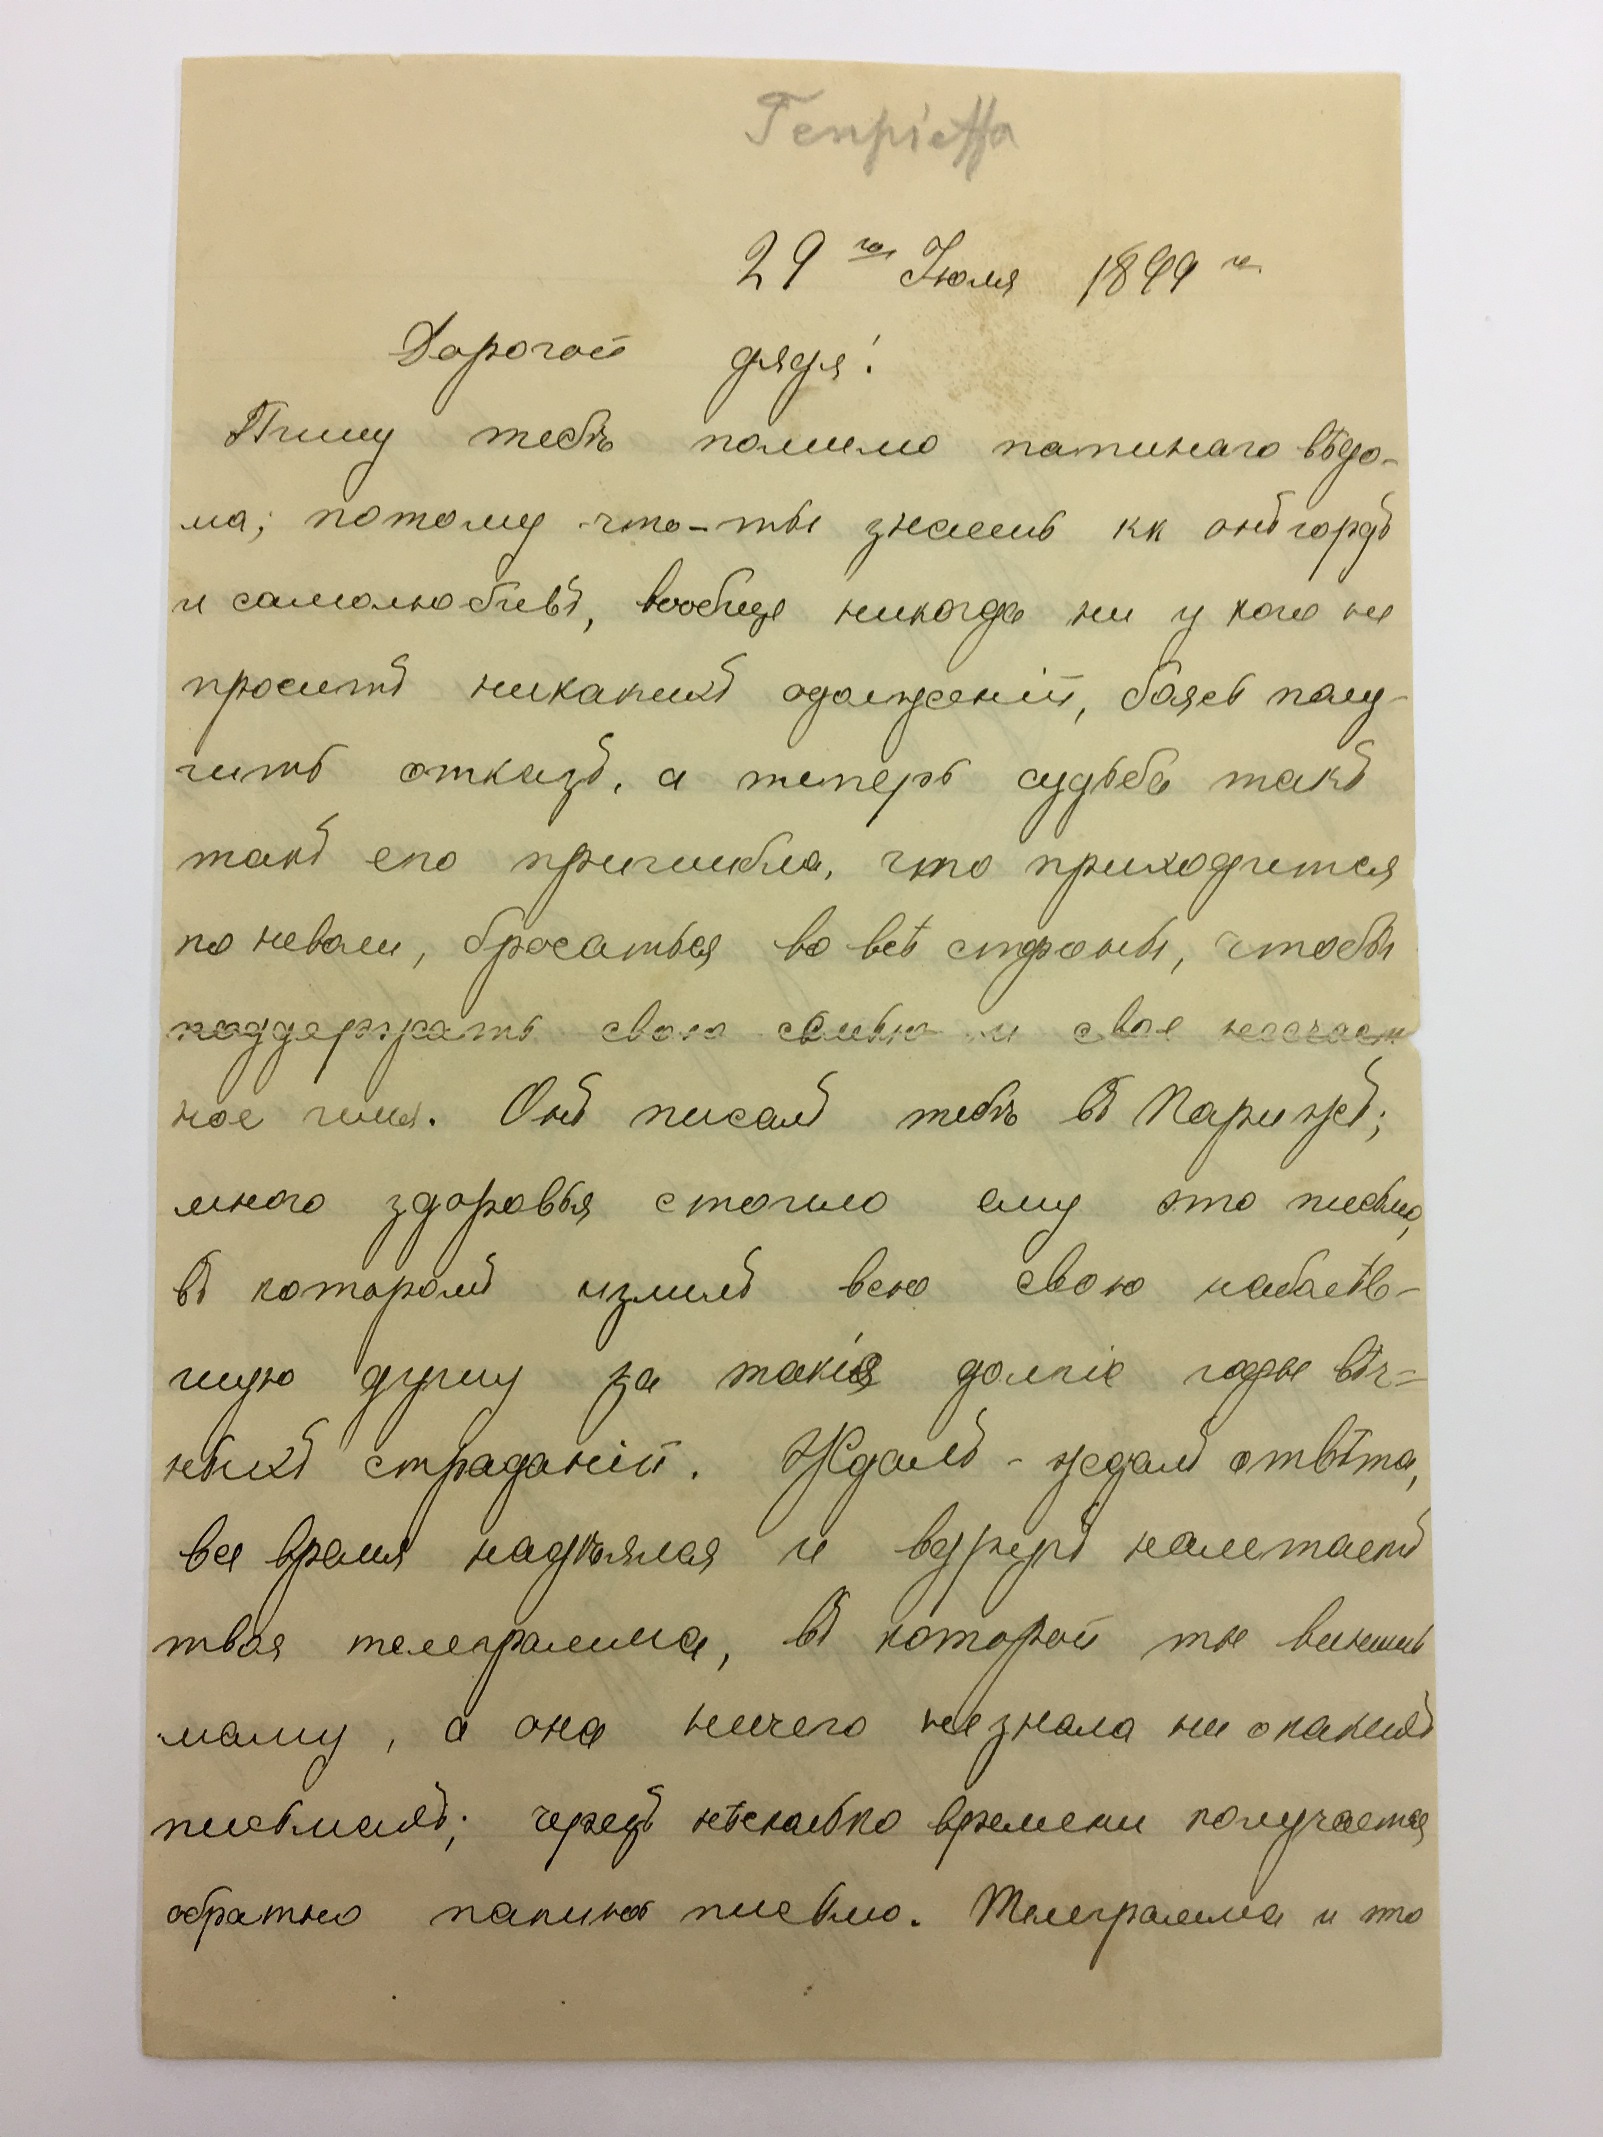 Генріетта
29го Іюля 1899 г.
Дорогой дядя!
Пишу тебѣ помимо папинаго вѣдо-
ма; потому-что-ты знаешь кк онъ гордъ
и самолюбивъ, вообще никогда ни у кого не
проситъ никакихъ одолженій, боясь полу-
чить отказъ, а теперь судьба такъ
такъ его пришибла, что приходится
по неволи, бросаться во всѣ стороны, чтобы
поддержать свою семью и свое несчаст
ное имя. Онъ писалъ тебѣ въ Парижъ;
много здоровья стоило ему это письмо,
въ которомъ излилъ всю свою наболѣв-
шую душу за такія долгіе годы вѣч=
ныхъ страданій. Ждалъ-ждалъ отвѣта,
все время надѣялся и вдругъ налетаетъ
твоя телеграмма, въ которой ты винишь
маму, а она ничего не знала ни о какихъ
письмахъ; черезъ нѣсколько времени получается
обратно папино письмо. Телеграмма и это